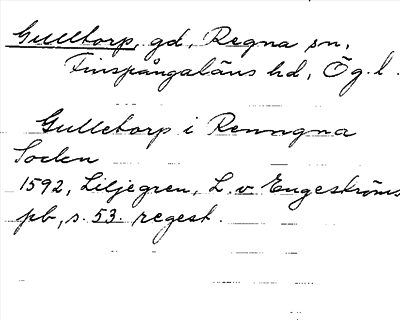 Gulltorp, gd, Regna sn,
Finspångaläns hd, Ög. l.
Gulletorp i Renagna
Sockn
1592, Liljegren, L. v Engeströms
pb, s. 53. regest.